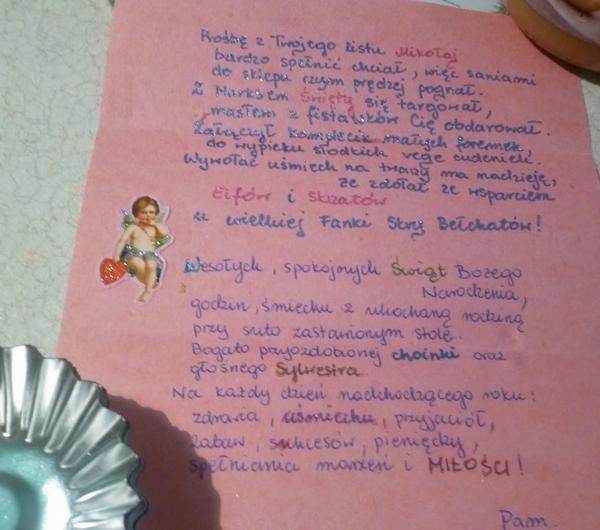 Prośbę z Twojego listu Mikołaj
bardzo spełnić chciał, więc saniami
do sklepu czym prędzej pognał.
Z Marksem Święty się targował,
masłem z fistaszków Cię obdarował.
Załączył komplecik małych foremek,
do wypieku słodkich vege cudeniek.
Wywołać uśmiech na twarzy ma nadzieję,
że zdołał ze wsparciem
Elfów i Skrzatów
u wielkiej Fanki Skry Bełchatów!
Wesołych, spokojnych Świąt Bożego
Narodzenia,
godzin, śmiechu z ukochaną rodziną
przy suto zastawionym stole.
Bogato przyozdobionej choinki oraz
głośnego Sylwestra.
Na każdy dzień nadchodzącego roku:
zdrowia, uśmiechu, przyjaciół,
zabaw, sukcesów, pieniędzy,
spełniania marzeń i MIŁOŚCI!
Pam